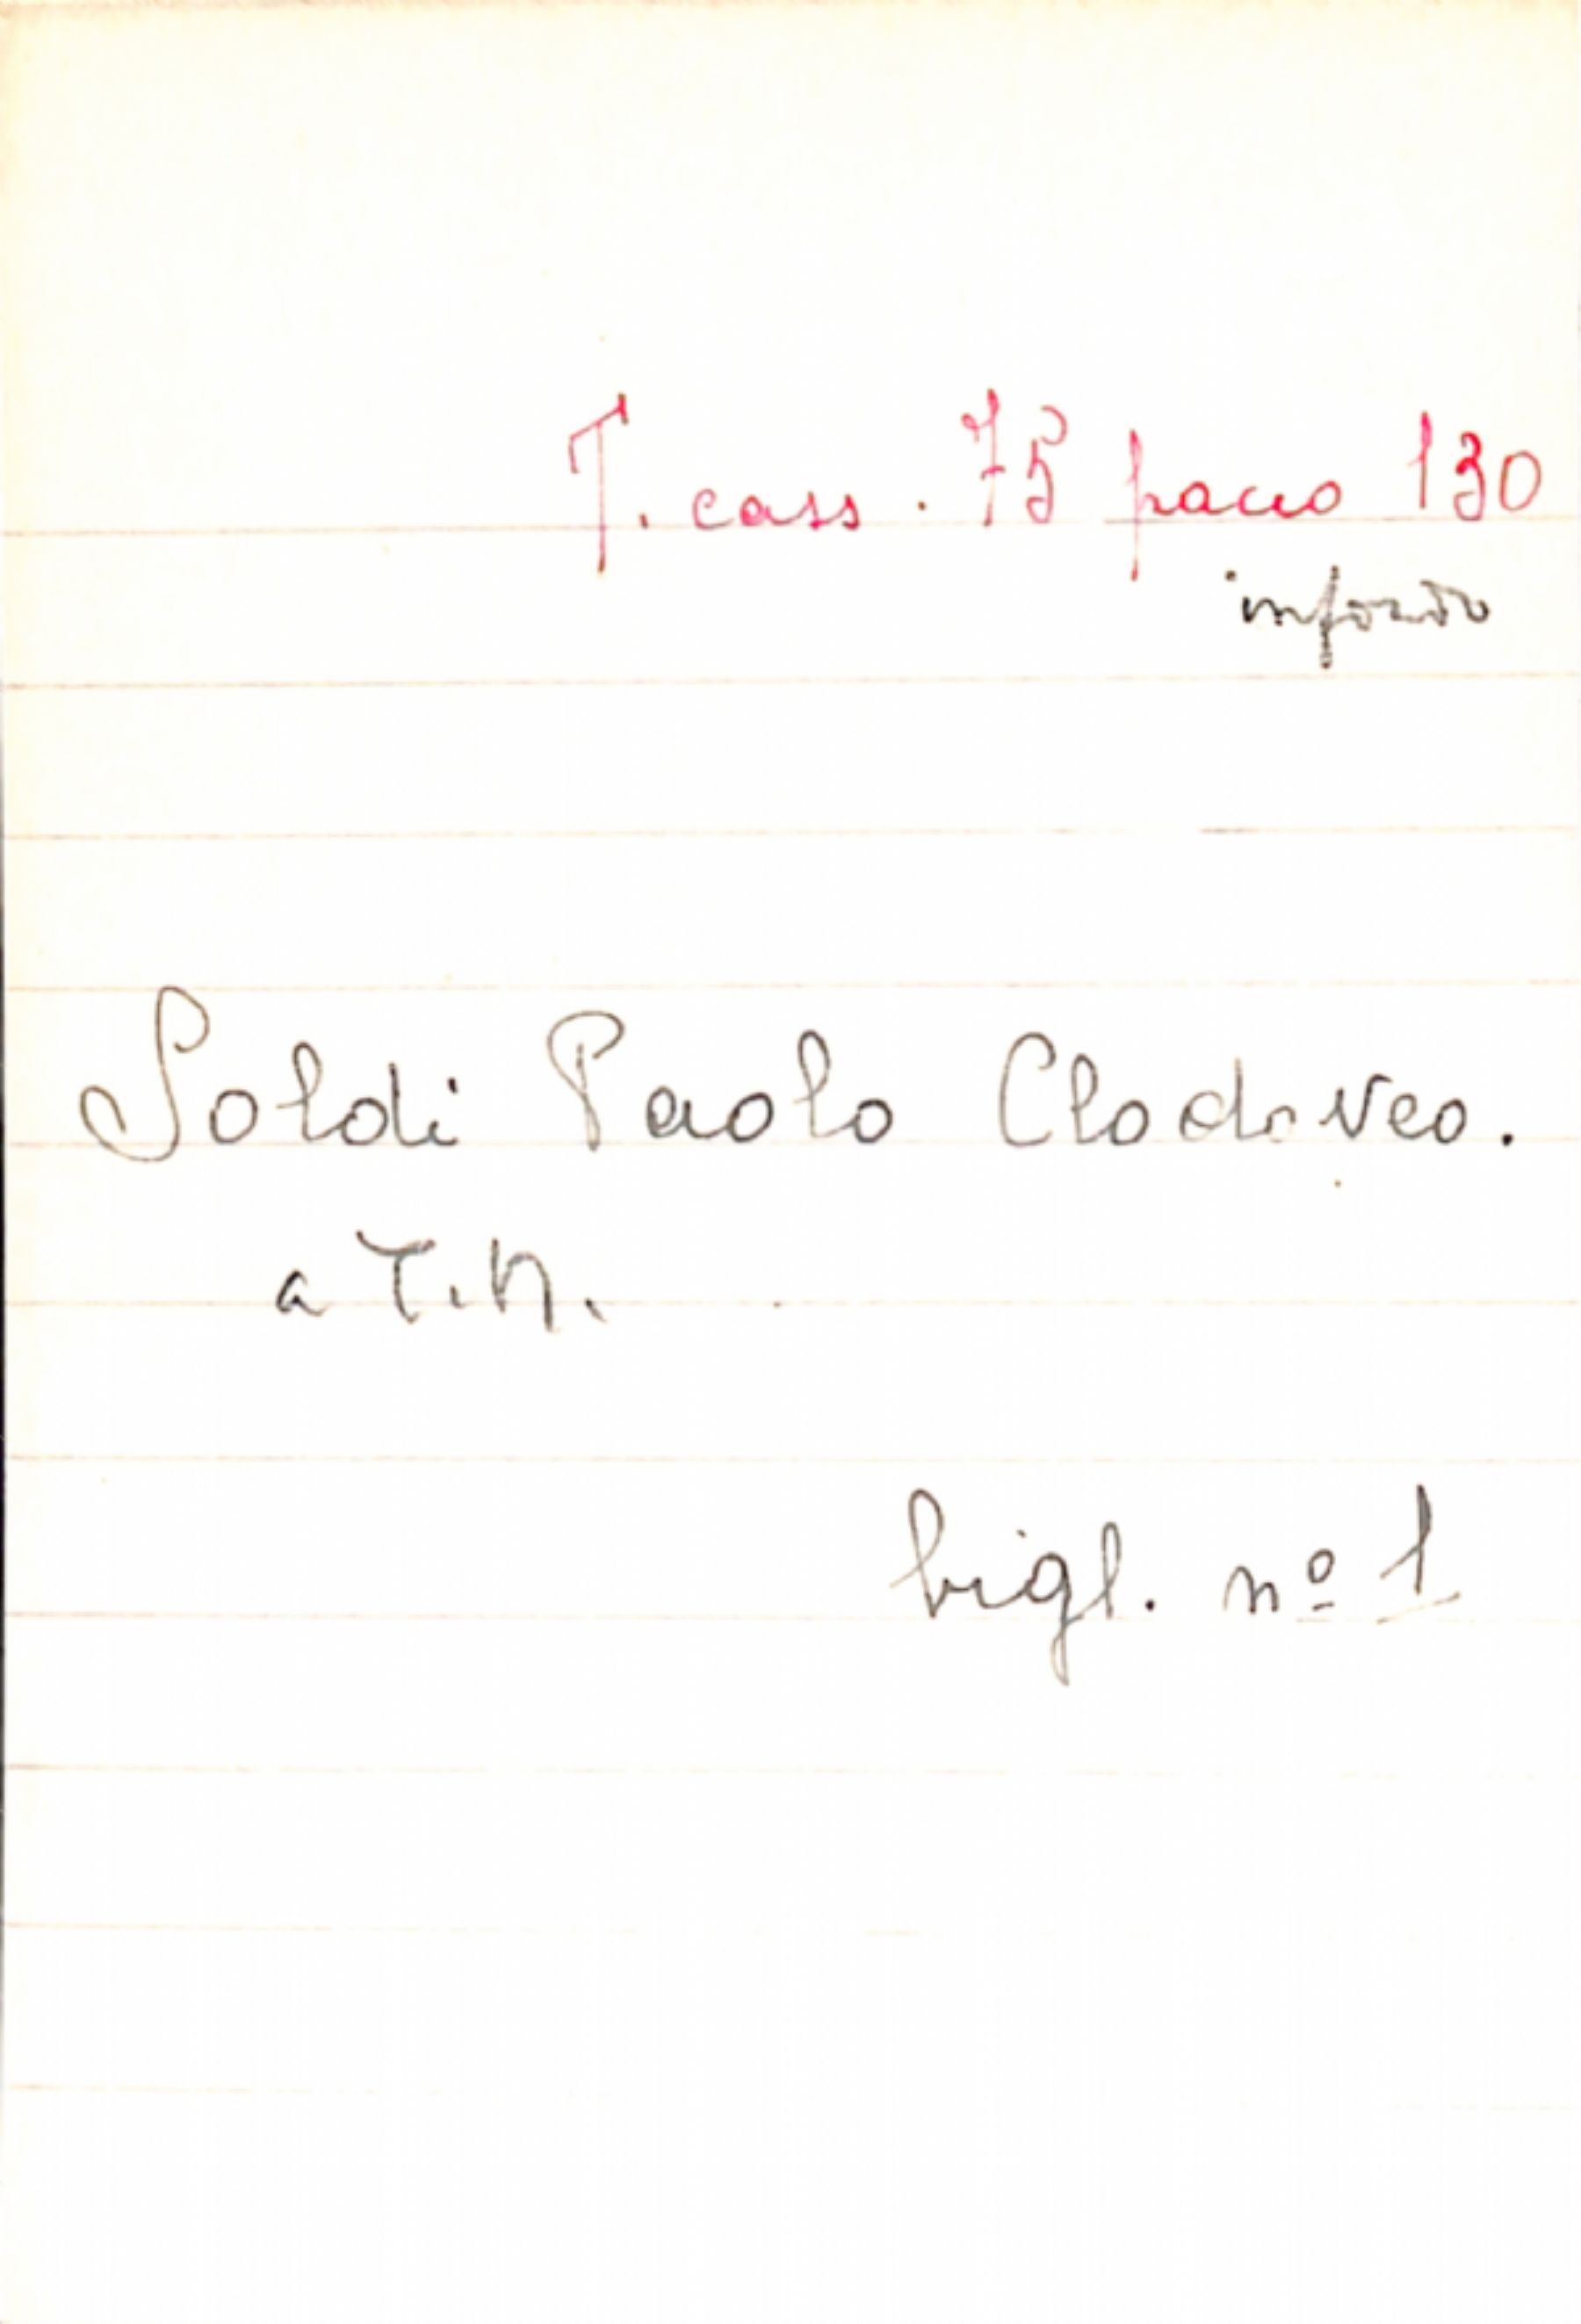 T. cass. 75 pacco 130
in fondo
Soldi Paolo Clodoveo.
a T. N.
bigl. nº 1